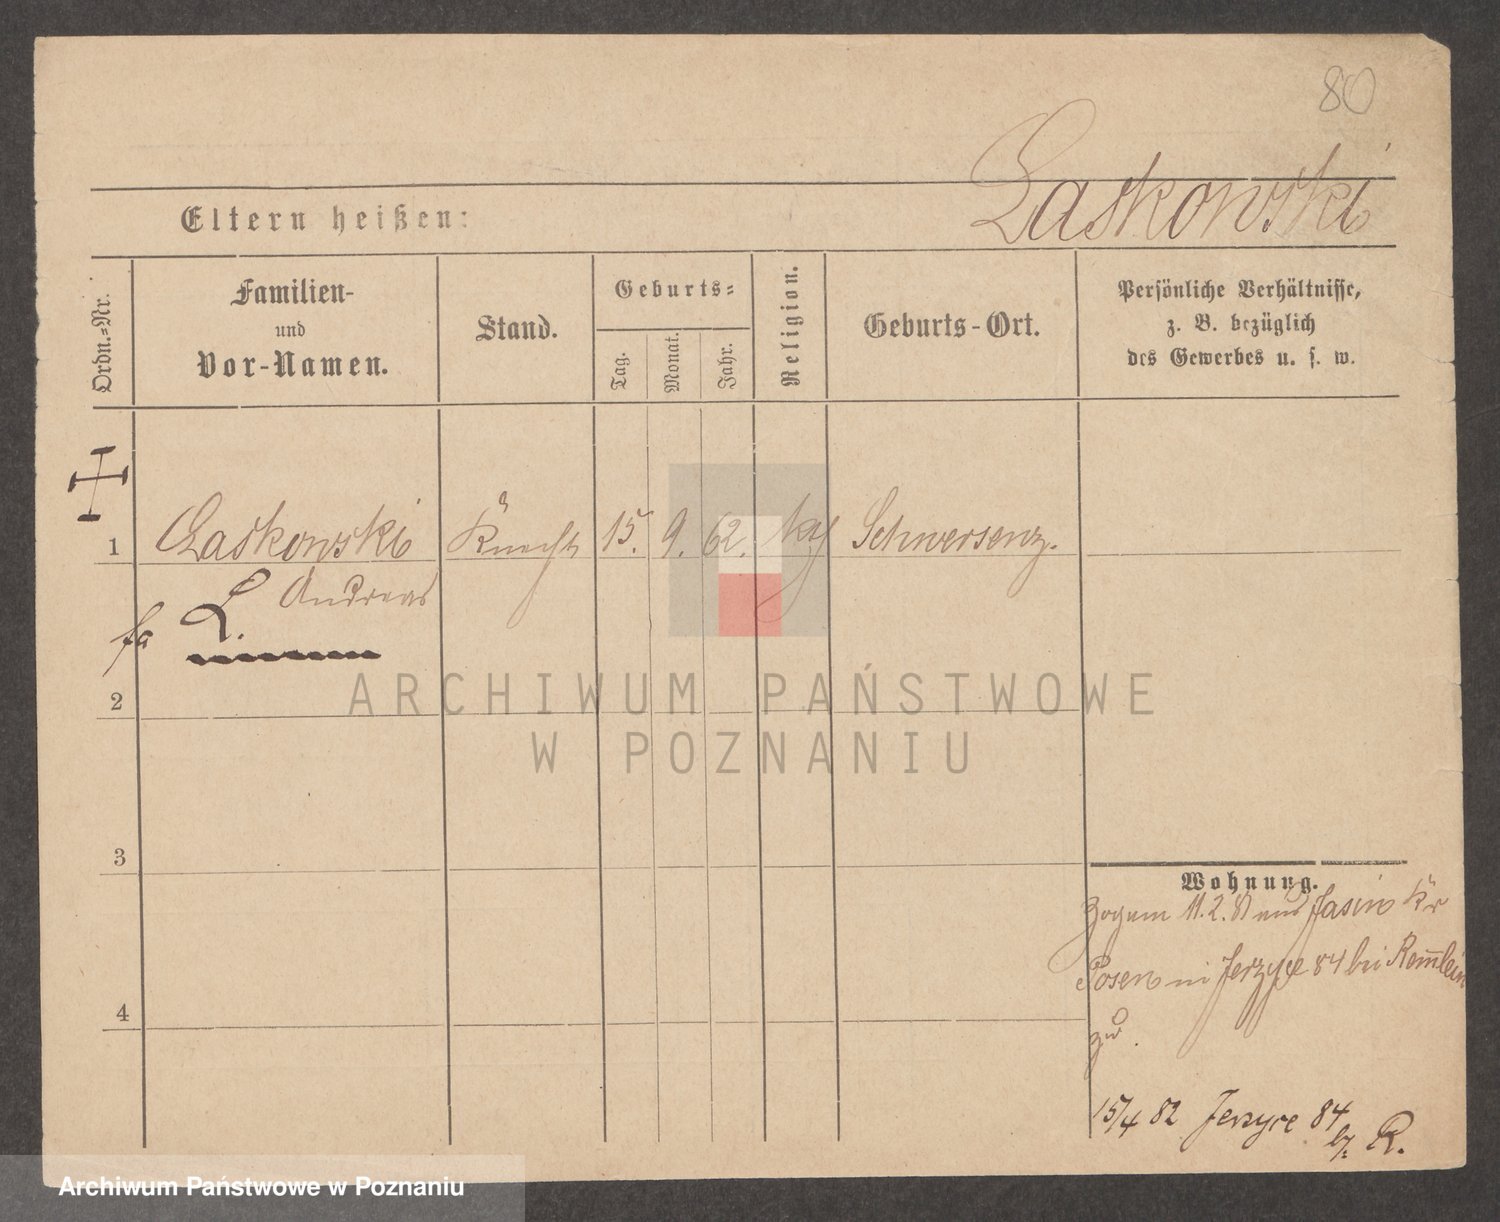 80
Laskowski
Eltern heißen:
Ordn.-Nr.
Familien-
und
Vor-Namen.
Stand.
Geburts-
Tag.
Monat.
Jahr.
Religion.
Geburts-Ort.
Persönliche Verhältnisse,
z. B. bezüglich
des Gewerbes u. s. w.
1 Laskowski Knecht 15. 9. 62. Schwersenz.
Andreas
L.
2
3
4
Wohnung.
Zog am 11.2.81 aus Jasin Kr
Posen in Jerzyce 84 bei Remlein
zu.
15/4 82 Jerzyce 84
b. R.
ARCHIWUM PAŃSTWOWE
W POZNANIU
Archiwum Państwowe w Poznaniu